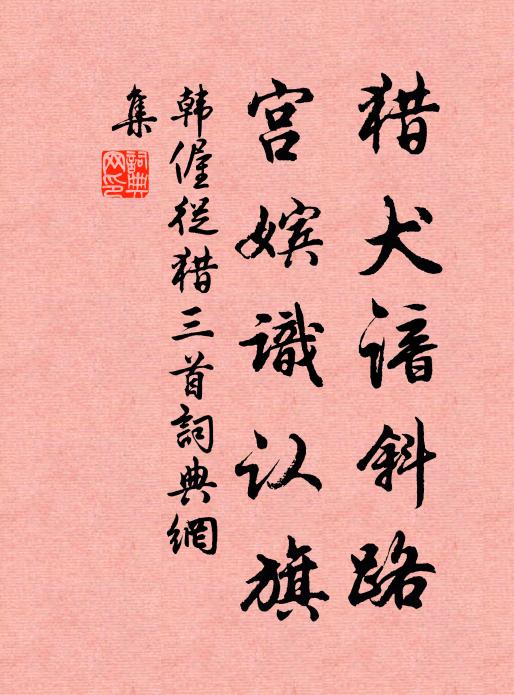 猎犬谙斜路
宫嫔识认旗
韩偓从猎三首词典網
集
詞典网印